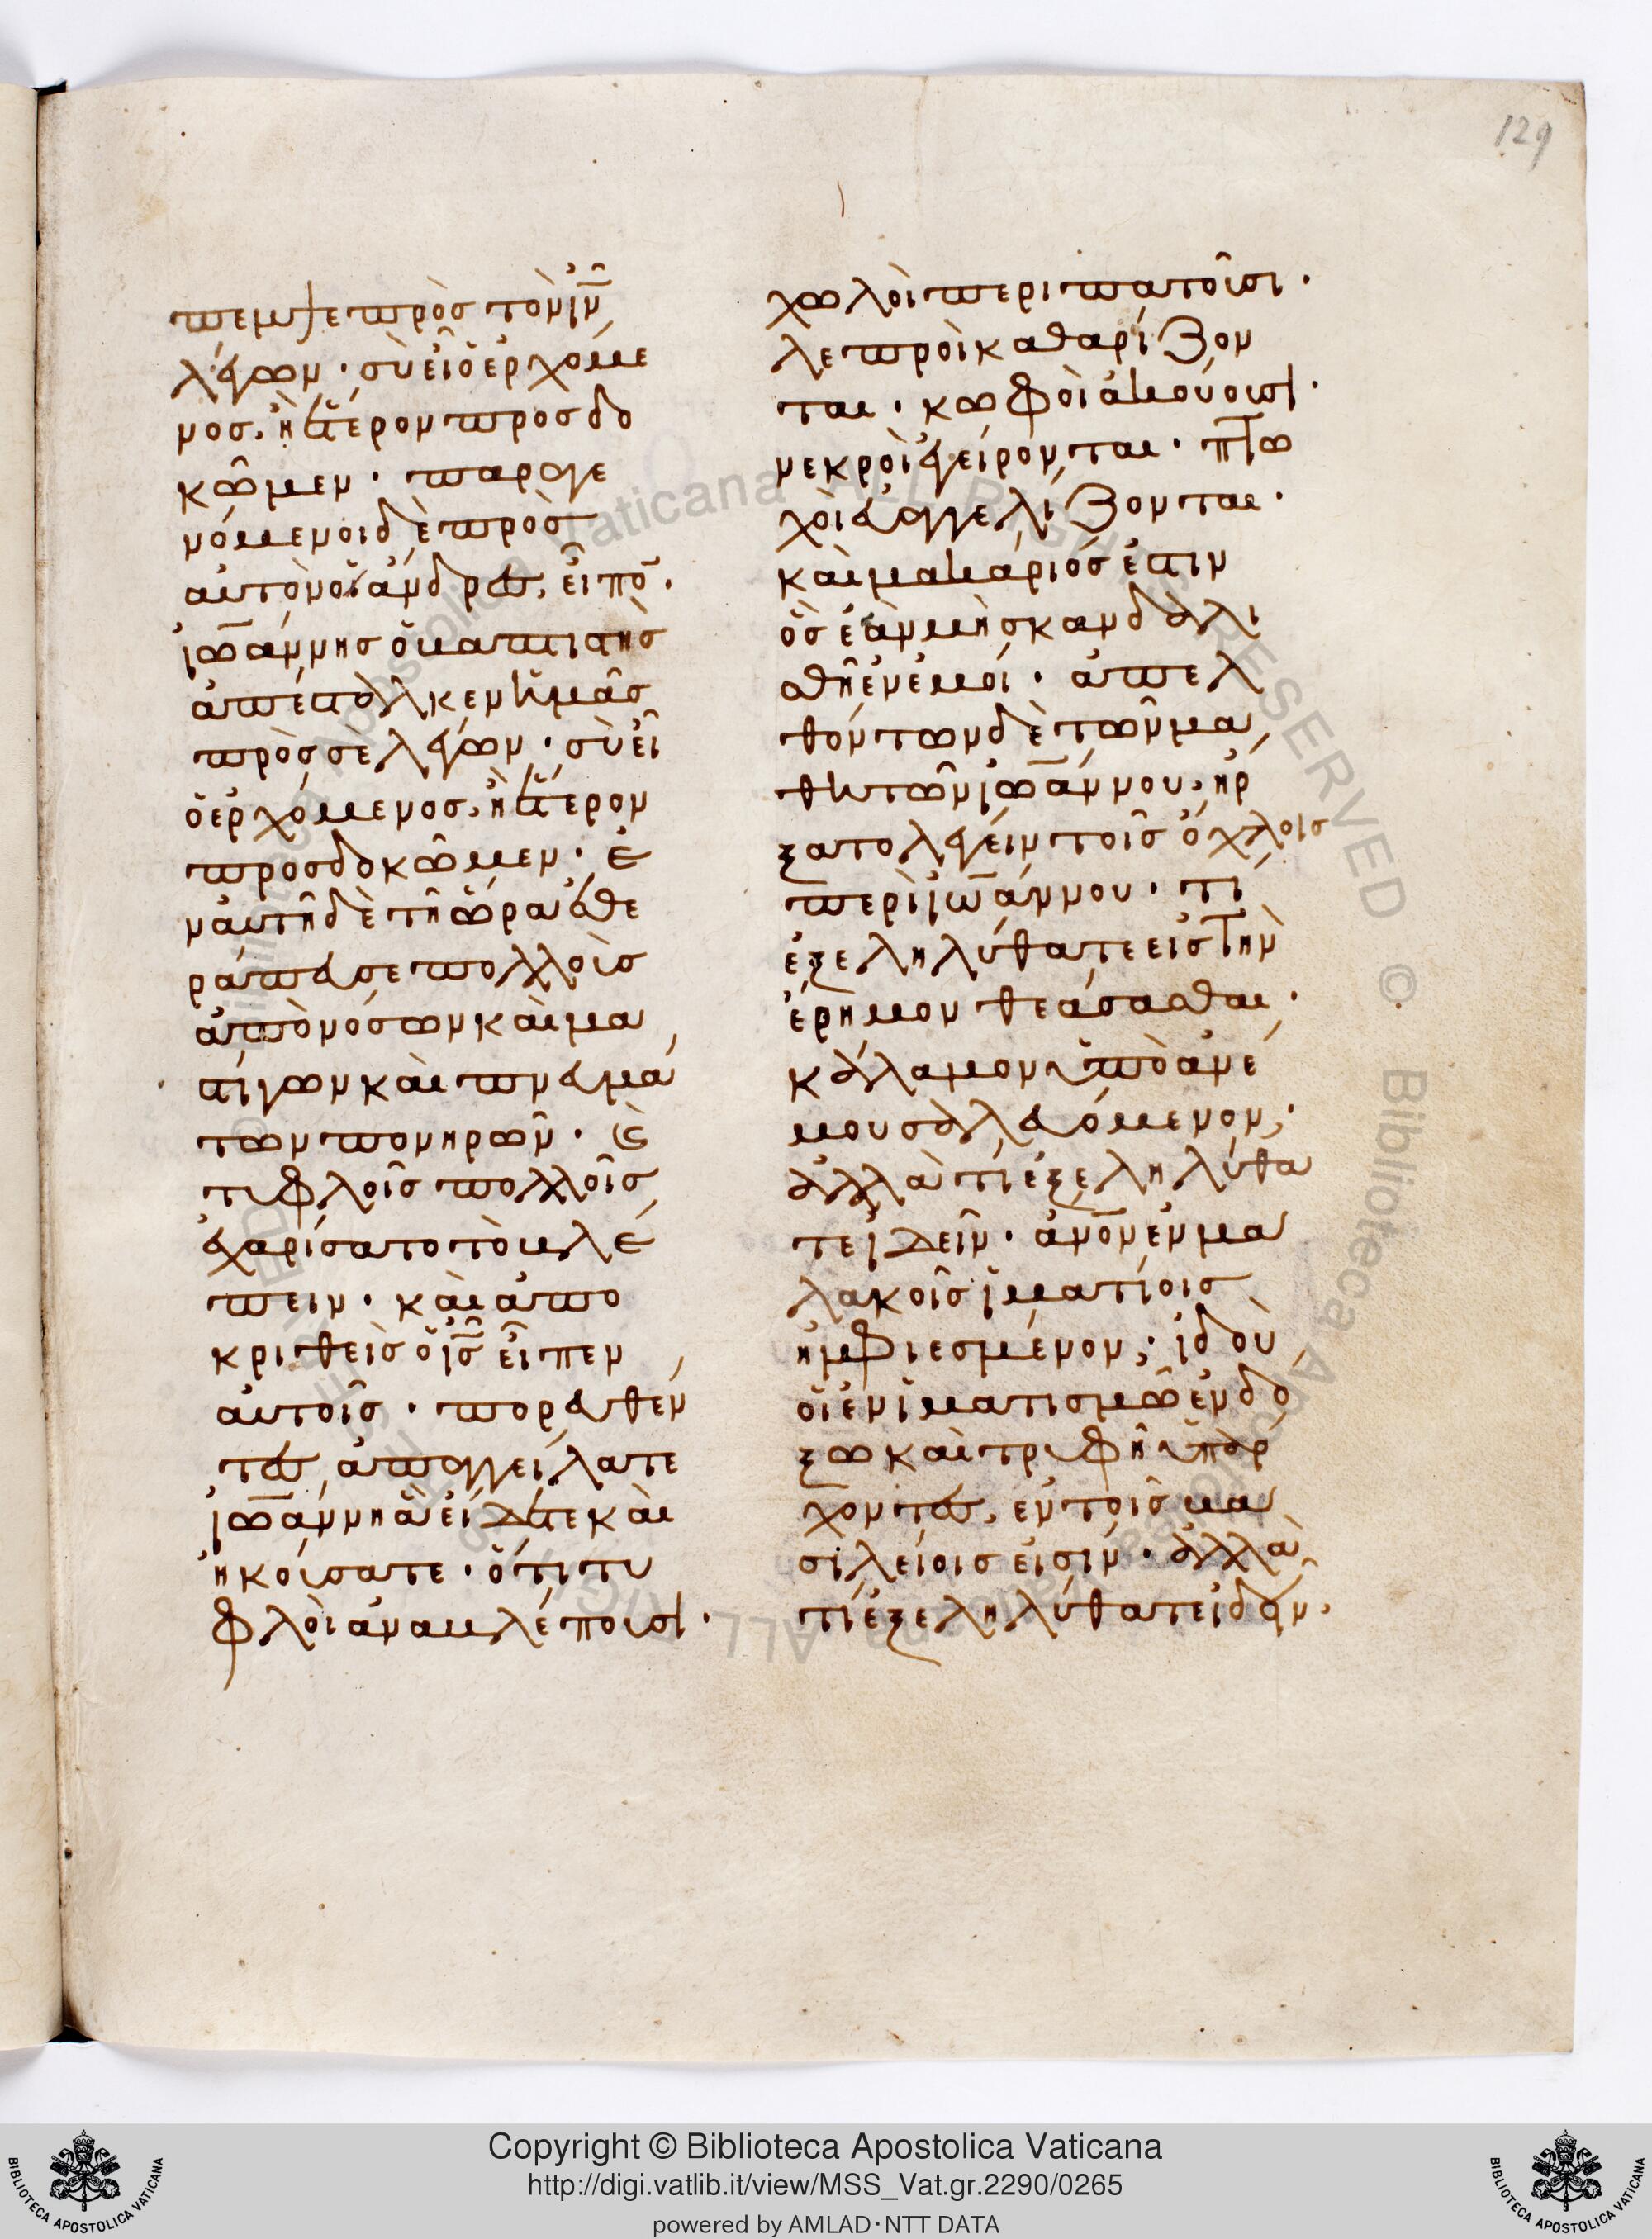 129
πεμψε πρὸς τὸν ἰν̅
λέγων · σὺ εἶ ὁ ἐρχόμε
νος, ἢ ἕτερον προσδο
κῶμεν · παραγε
νόμενοι δὲ πρὸς
αὐτὸν οἱ ἄνδρες, εἶπο̅ ·
ἰωάννης ὁ βαπτιστὴς
ἀπέσταλκεν ἡμᾶς
πρὸς σὲ λέγων · σὺ εἶ
ὁ ἐρχόμενος, ἢ ἕτερον
προσδοκῶμεν · ἐ
ν αὐτῆ δὲ τῆ ὥρα ἐθε
ράπευσε πολλοὺς
ἀπὸ νόσων καὶ μα
στίγων καὶ πνευμά
των πονηρῶν · ϗ
τυφλοῖς πολλοῖς
ἐχαρίσατο τὸ βλέ
πειν · καὶ ἀπο
κριθεὶς ὁ ἰς̅ εἶπεν
αὐτοῖς · πορευθέν
τες ἀπαγγείλατε
ἰωάννη ἃ εἴδετε καὶ
ἠκούσατε · ὅτι τυ
φλοὶ ἀναβλέπουσι ·
χωλοὶ περιπατοῦσι ·
λεπροὶ καθαρίζον
ται · κωφοὶ ἀκούουσι ·
νεκροὶ ἐγείρονται · πτω
χοὶ εὐαγγελίζονται ·
καὶ μακάριός ἐστιν
ὃς ἐὰν μὴ σκανδαλι
σθῆ ἐν ἐμοί · ἀπελ
θόντων δὲ τῶν μα
θητῶν ἰωάννου, ἤρ
ξατο λέγειν τοῖς ὄχλοις
περὶ ἰωάννου · τί
ἐξεληλύθατε εἰς τὴν
ἔρημον θεάσασθαι ·
κάλαμον ὑπὸ ἀνέ
μου σαλευόμενον;
ἀλλὰ τί ἐξεληλύθα
τε ἰδεῖν · ἀν̅ον ἐν μα
λακοῖς ἱματίοις
ἠμφιεσμένον; ἰδοὺ
οἱ ἐν ἱματισμῶ ἐνδό
ξω καὶ τρυφῆ ὑπάρ
χοντες, ἐν τοῖς βα
σιλείοις εἰσίν · ἀλλὰ
τί ἐξεληλύθατε ἰδεῖν,
Copyright © Biblioteca Apostolica Vaticana
http://digi.vatlib.it/view/MSS_Vat.gr.2290/0265
powered by AMLAD·NTT DATA
BIBLIOTECA APOSTOLICA VATICANA
BIBLIOTECA APOSTOLICA VATICANA